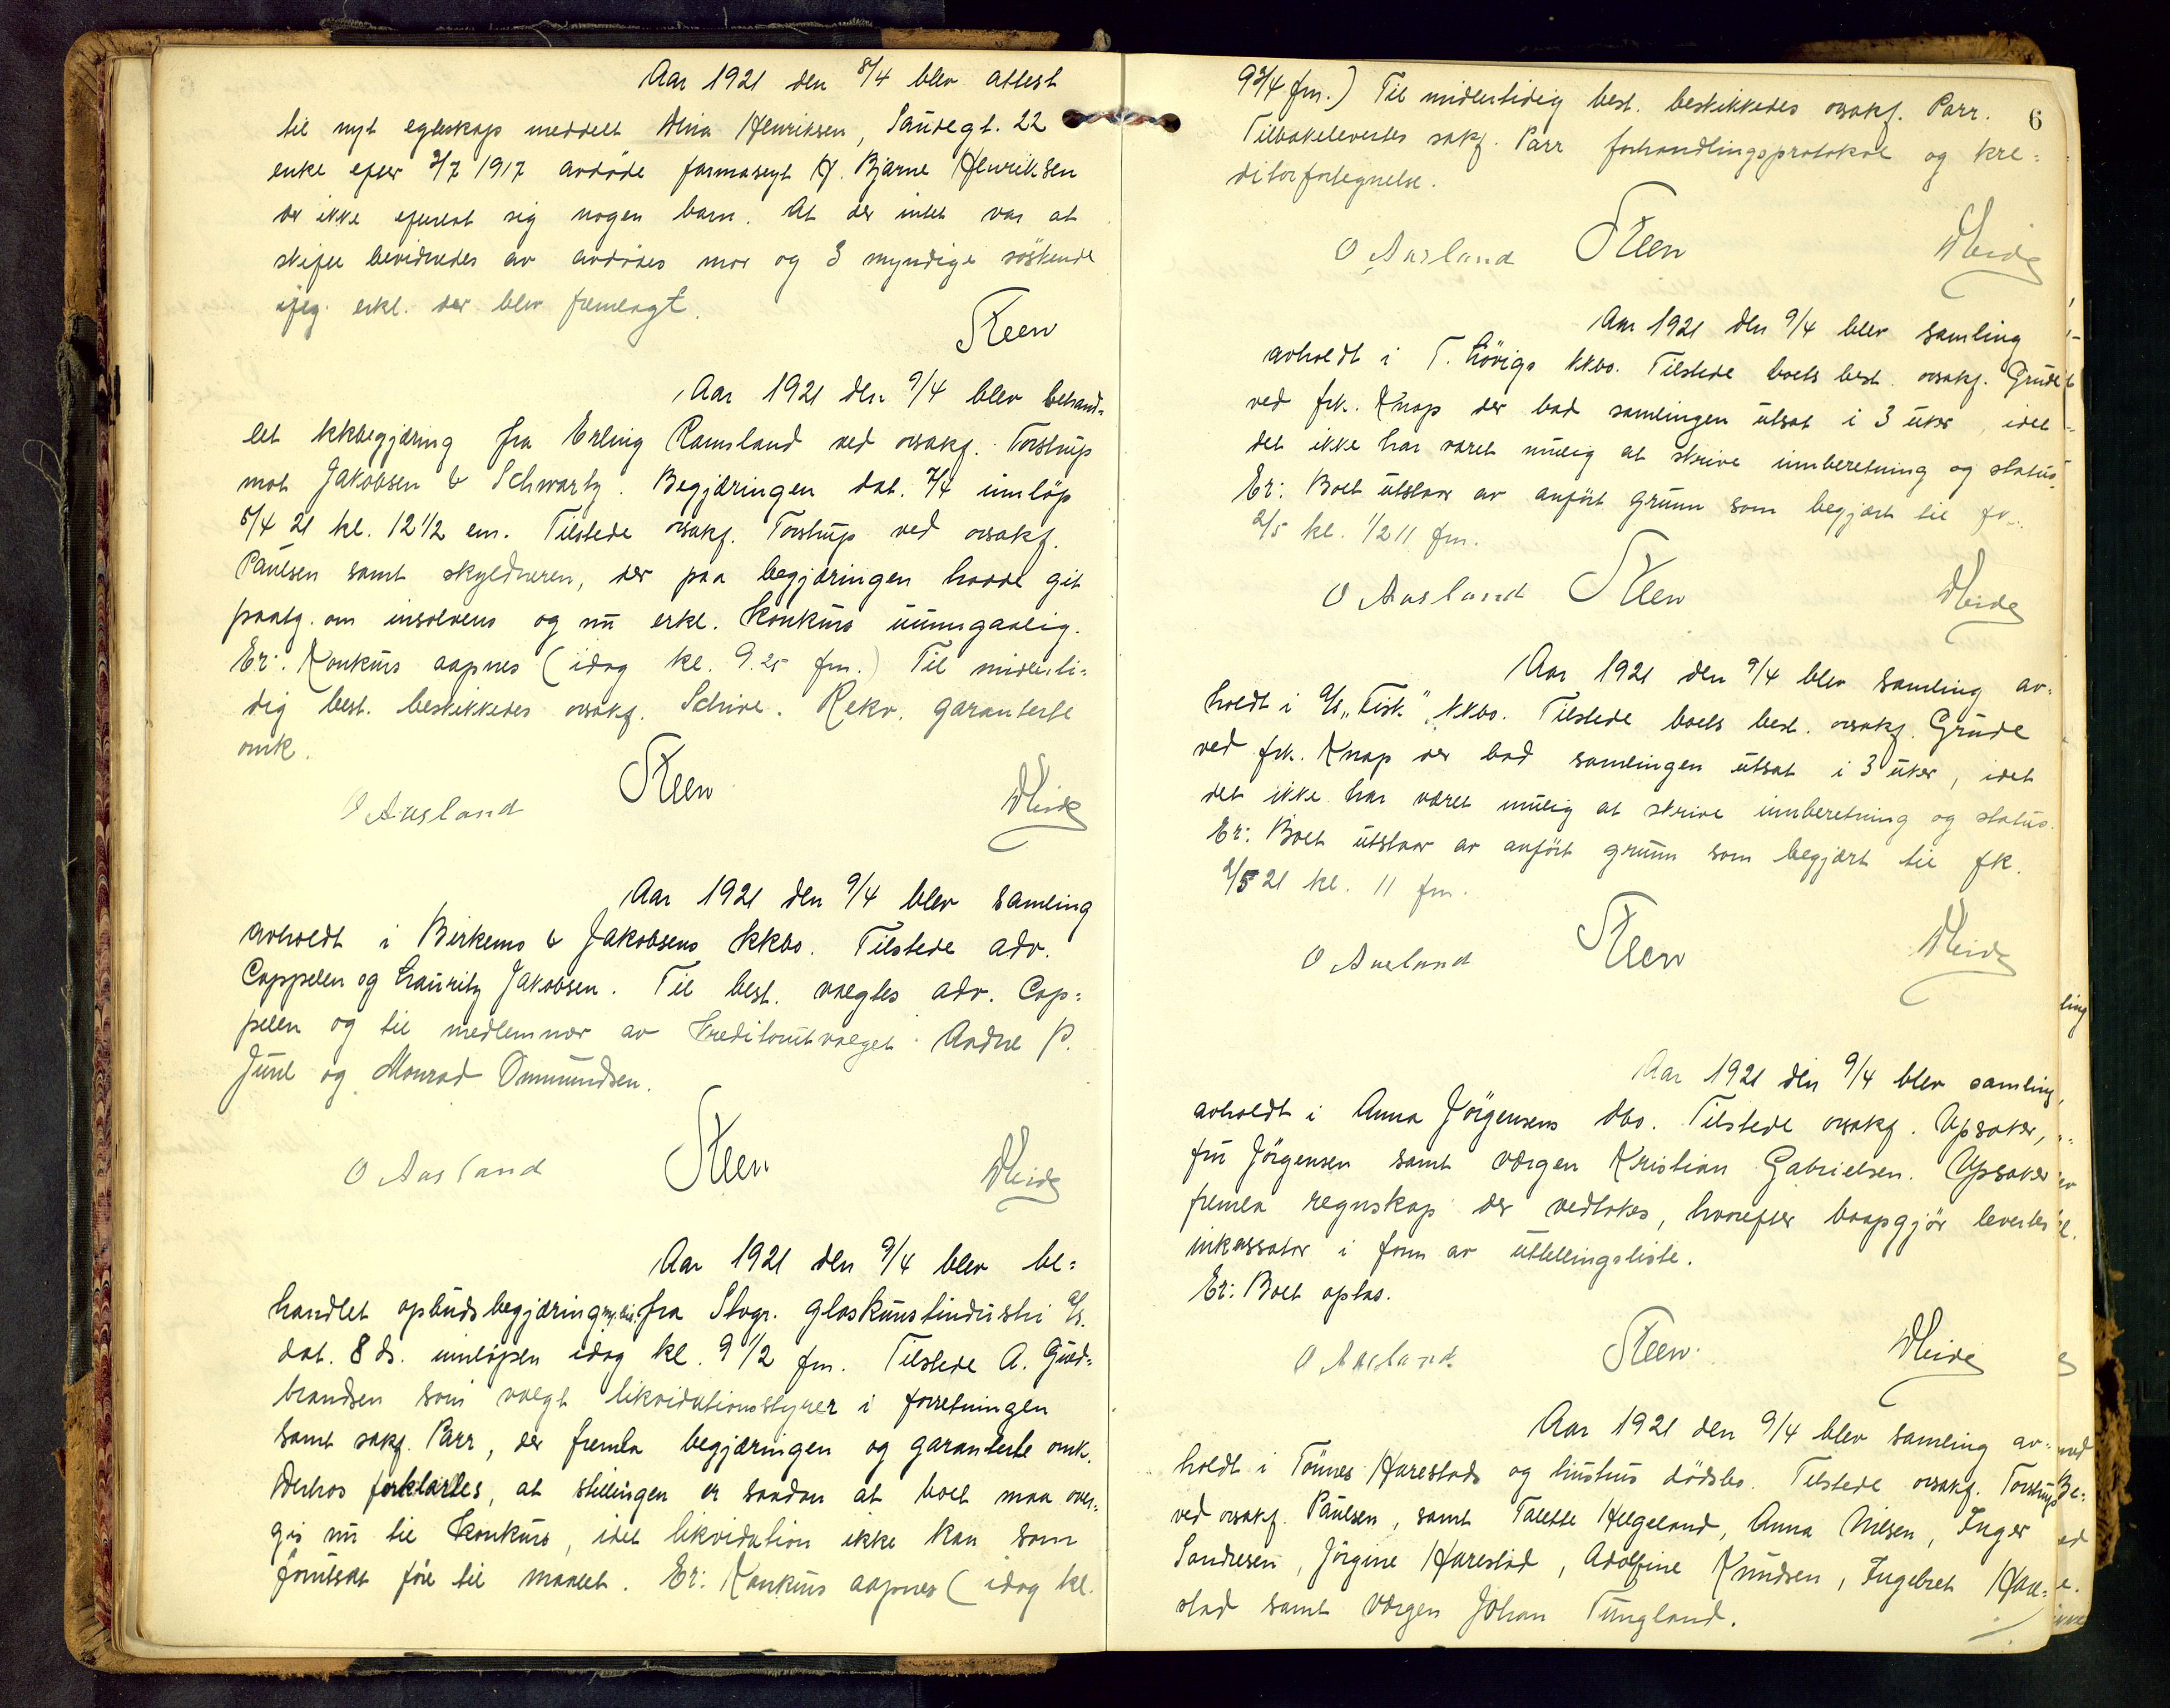 Aar 1921 den 8/4 blev attest
til nyt egteskap meddelt Alma Henriksen, Saudegt. 22
enke efter 3/7 1917 avdöde farmaseyt H. Bjarne Henriksen
der ikke efterlot sig nogen barn. At der intet var at
skifte bevidnedes av avdödes mor og 3 myndige söskende
ifeg. erkl. der blev fremlagt.
Steen
Aar 1921 den 9/4 blev behand=
let kkbegjæring fra Erling Ramsland ved orsakf. Torstrup
mot Jakobsen & Schwartz. Begjæringen dat. 7/4 innløp
8/4 21 kl. 12 1/2 em. Tilstede orsakf. Torstrup ved orsakf.
Paulsen samt skyldneren, der paa begjæringen hadde git
paatg. om insolvens og nu erkl. konkurs uunngaalig.
Er: Konkurs aapnes (idag kl. 9.25 fm.) Til midlerti=
dig best. beskikkedes orsakf. Schive. Rekv. garanterte
omk.
O Ausland Steen Heide
Aar 1921 den 9/4 blev samling
avholdt i Birkemo & Jakobsens kkbo. Tilstede adv.
Cappelen og Lauritz Jakobsen. Til best. valgtes adv. Cap=
pelen og til medlemmer av kreditorutvalget Andre P.
Juul og Monrad Ommundsen.
O Ausland Steen Heide
Aar 1921 den 9/4 blev be=
handlet opbudsbegjæring fra Stvgr. glaskunstindustri A/s.
dat. 8 ds. innløpen idag kl. 9 1/2 fm. Tilstede A. Guld=
brandsen som valgt likvidationsstyrer i forretningen
samt sakf. Parr, der fremla begjæringen og garanterte omk.
Derhos forklartes, at stillingen er saadan at boet maa over=
gis nu til konkurs, idet likvidation ikke kan som
forutsat före til maalet. Er: Konkurs aapnes (idag kl.
6
9 3/4 fm.) Til midlertidig best. beskikkedes orsakf. Parr.
Tilbakelevertes sakf. Parr forhandlingsprotokol og kre=
ditorfortegnelse.
O Ausland Steen Heide
Aar 1921 den 9/4 blev samling
avholdt i T. Lövigs kkbo. Tilstede boets best. orsakf. Grude
ved frk. Knap der bad samlingen utsat i 3 uker, idet
det ikke har været mulig at skrive innberetning og status.
Er: Boet utstaar av anført grunn som begjært til
2/5 kl. 1/2 11 fm.
O Ausland Steen Heide
Aar 1921 den 9/4 blev samling av=
holdt i A/s „Fisk" kkbo. Tilstede boets best. orsakf. Grude
ved frk. Knap der bad samlingen utsat i 3 uker, idet
det ikke har været mulig at skrive innberetning og status.
Er: Boet utstaar av anført grunn som begjært til fk.
2/5 21 kl. 11 fm.
O Ausland Steen Heide
Aar 1921 den 9/4 blev samling
avholdt i Anna Jörgensens dbo. Tilstede orsakf. Opsaker,
fru Jörgensen samt værgen Kristian Gabrielsen. Opsaker
fremla regnskap der vedtokes, hvorefter boopgjör levertes
inkassator i form av uttellingsliste.
Er: Boet optas.
O Ausland Steen Heide
Aar 1921 den 9/4 blev samling av=
holdt i Tönnes Harestads og hustrus dödsbo. Tilstede orsakf. Torstrup
ved orsakf. Paulsen, samt Talette Helgeland, Anna Nilsen, Inger
Sandresen, Jörgine Harestad, Adolfine Knudsen, Ingebret Hare=
stad samt værgen Johan Tungland.